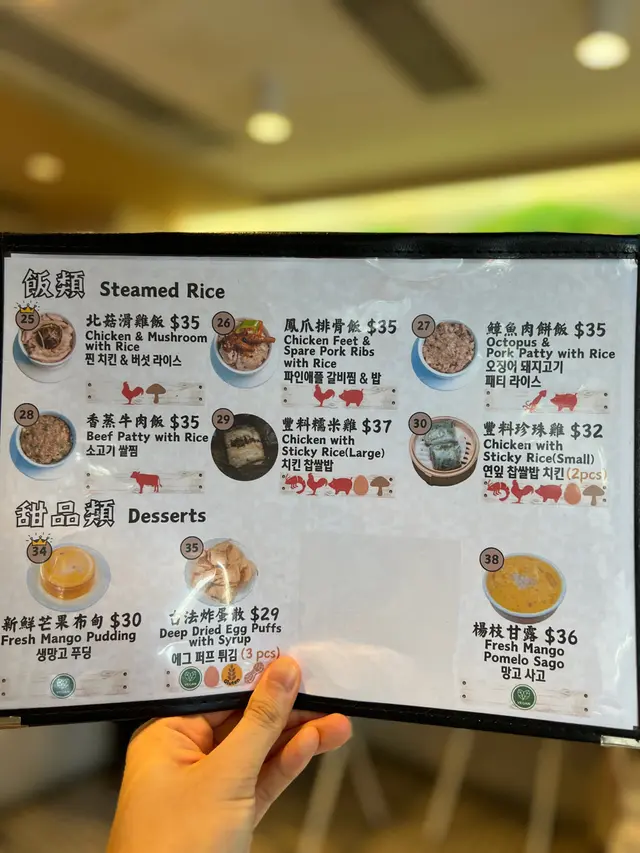 飯類 Steamed Rice
25
北菇滑雞飯 $35
Chicken & Mushroom
with Rice
찐 치킨 & 버섯 라이스
26
鳳爪排骨飯 $35
Chicken Feet &
Spare Pork Ribs
with Rice
파인애플 갈비찜 & 밥
27
鱆魚肉餅飯 $35
Octopus &
Pork Patty with Rice
오징어 돼지고기
패티 라이스
28
香蒸牛肉飯 $35
Beef Patty with Rice
소고기 쌀찜
29
豐料糯米雞 $37
Chicken with
Sticky Rice(Large)
치킨 찹쌀밥
30
豐料珍珠雞 $32
Chicken with
Sticky Rice(Small)
연잎 찹쌀밥 치킨 (2pcs)
甜品類 Desserts
34
新鮮芒果布甸 $30
Fresh Mango Pudding
생망고 푸딩
35
古法炸蛋散 $29
Deep Dried Egg Puffs
with Syrup
에그 퍼프 튀김 (3 pcs)
38
楊枝甘露 $36
Fresh Mango
Pomelo Sago
망고 사고